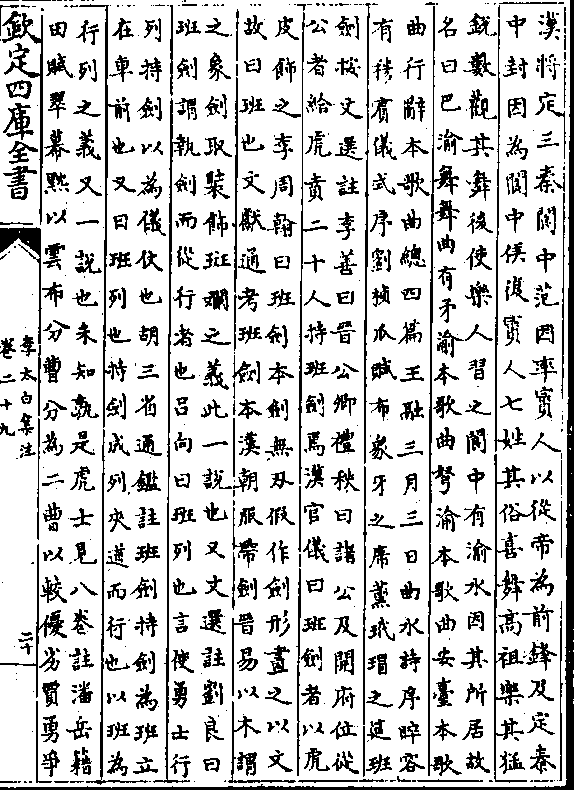 漢將定三秦閬中范因率賨人以從帝為前鋒及定秦
中封因為閬中侯復賨人七姓其俗喜舞高祖樂其猛
銳數觀其舞後使樂人習之閬中有渝水因其所居故
名曰巴渝舞舞曲有矛渝本歌曲弩渝本歌曲安臺本歌
曲行辭本歌曲總四篇王融三月三日曲水詩序晬容
有穆賓儀式序劉楨瓜賦布象牙之席薫玳瑁之筵班
劍按文選註李善曰晉公卿禮秩曰諸公及開府位從
公者給虎賁二十人持班劍焉漢官儀曰班劍者以虎
皮飾之李周翰曰班劍本劍無刃假作劍形畫之以文
故曰班也文獻通考班劍本漢朝服帶劍晉易以木謂
之象劍取裝飾斑斕之義此一說也又文選註劉良曰
班劍謂執劍而從行者也呂向曰班列也言使勇士行
列持劍以為儀仗也胡三省通鑑註班劍持劍為班立
在車前也又曰班列也持劍成列夾道而行也以班為
行列之義又一說也未知孰是虎士見八卷註潘岳籍
田賦翠幕黙以雲布分曹分為二曹以較優劣賈勇爭
欽定四庫全書
李太白集注
卷二十九
二十